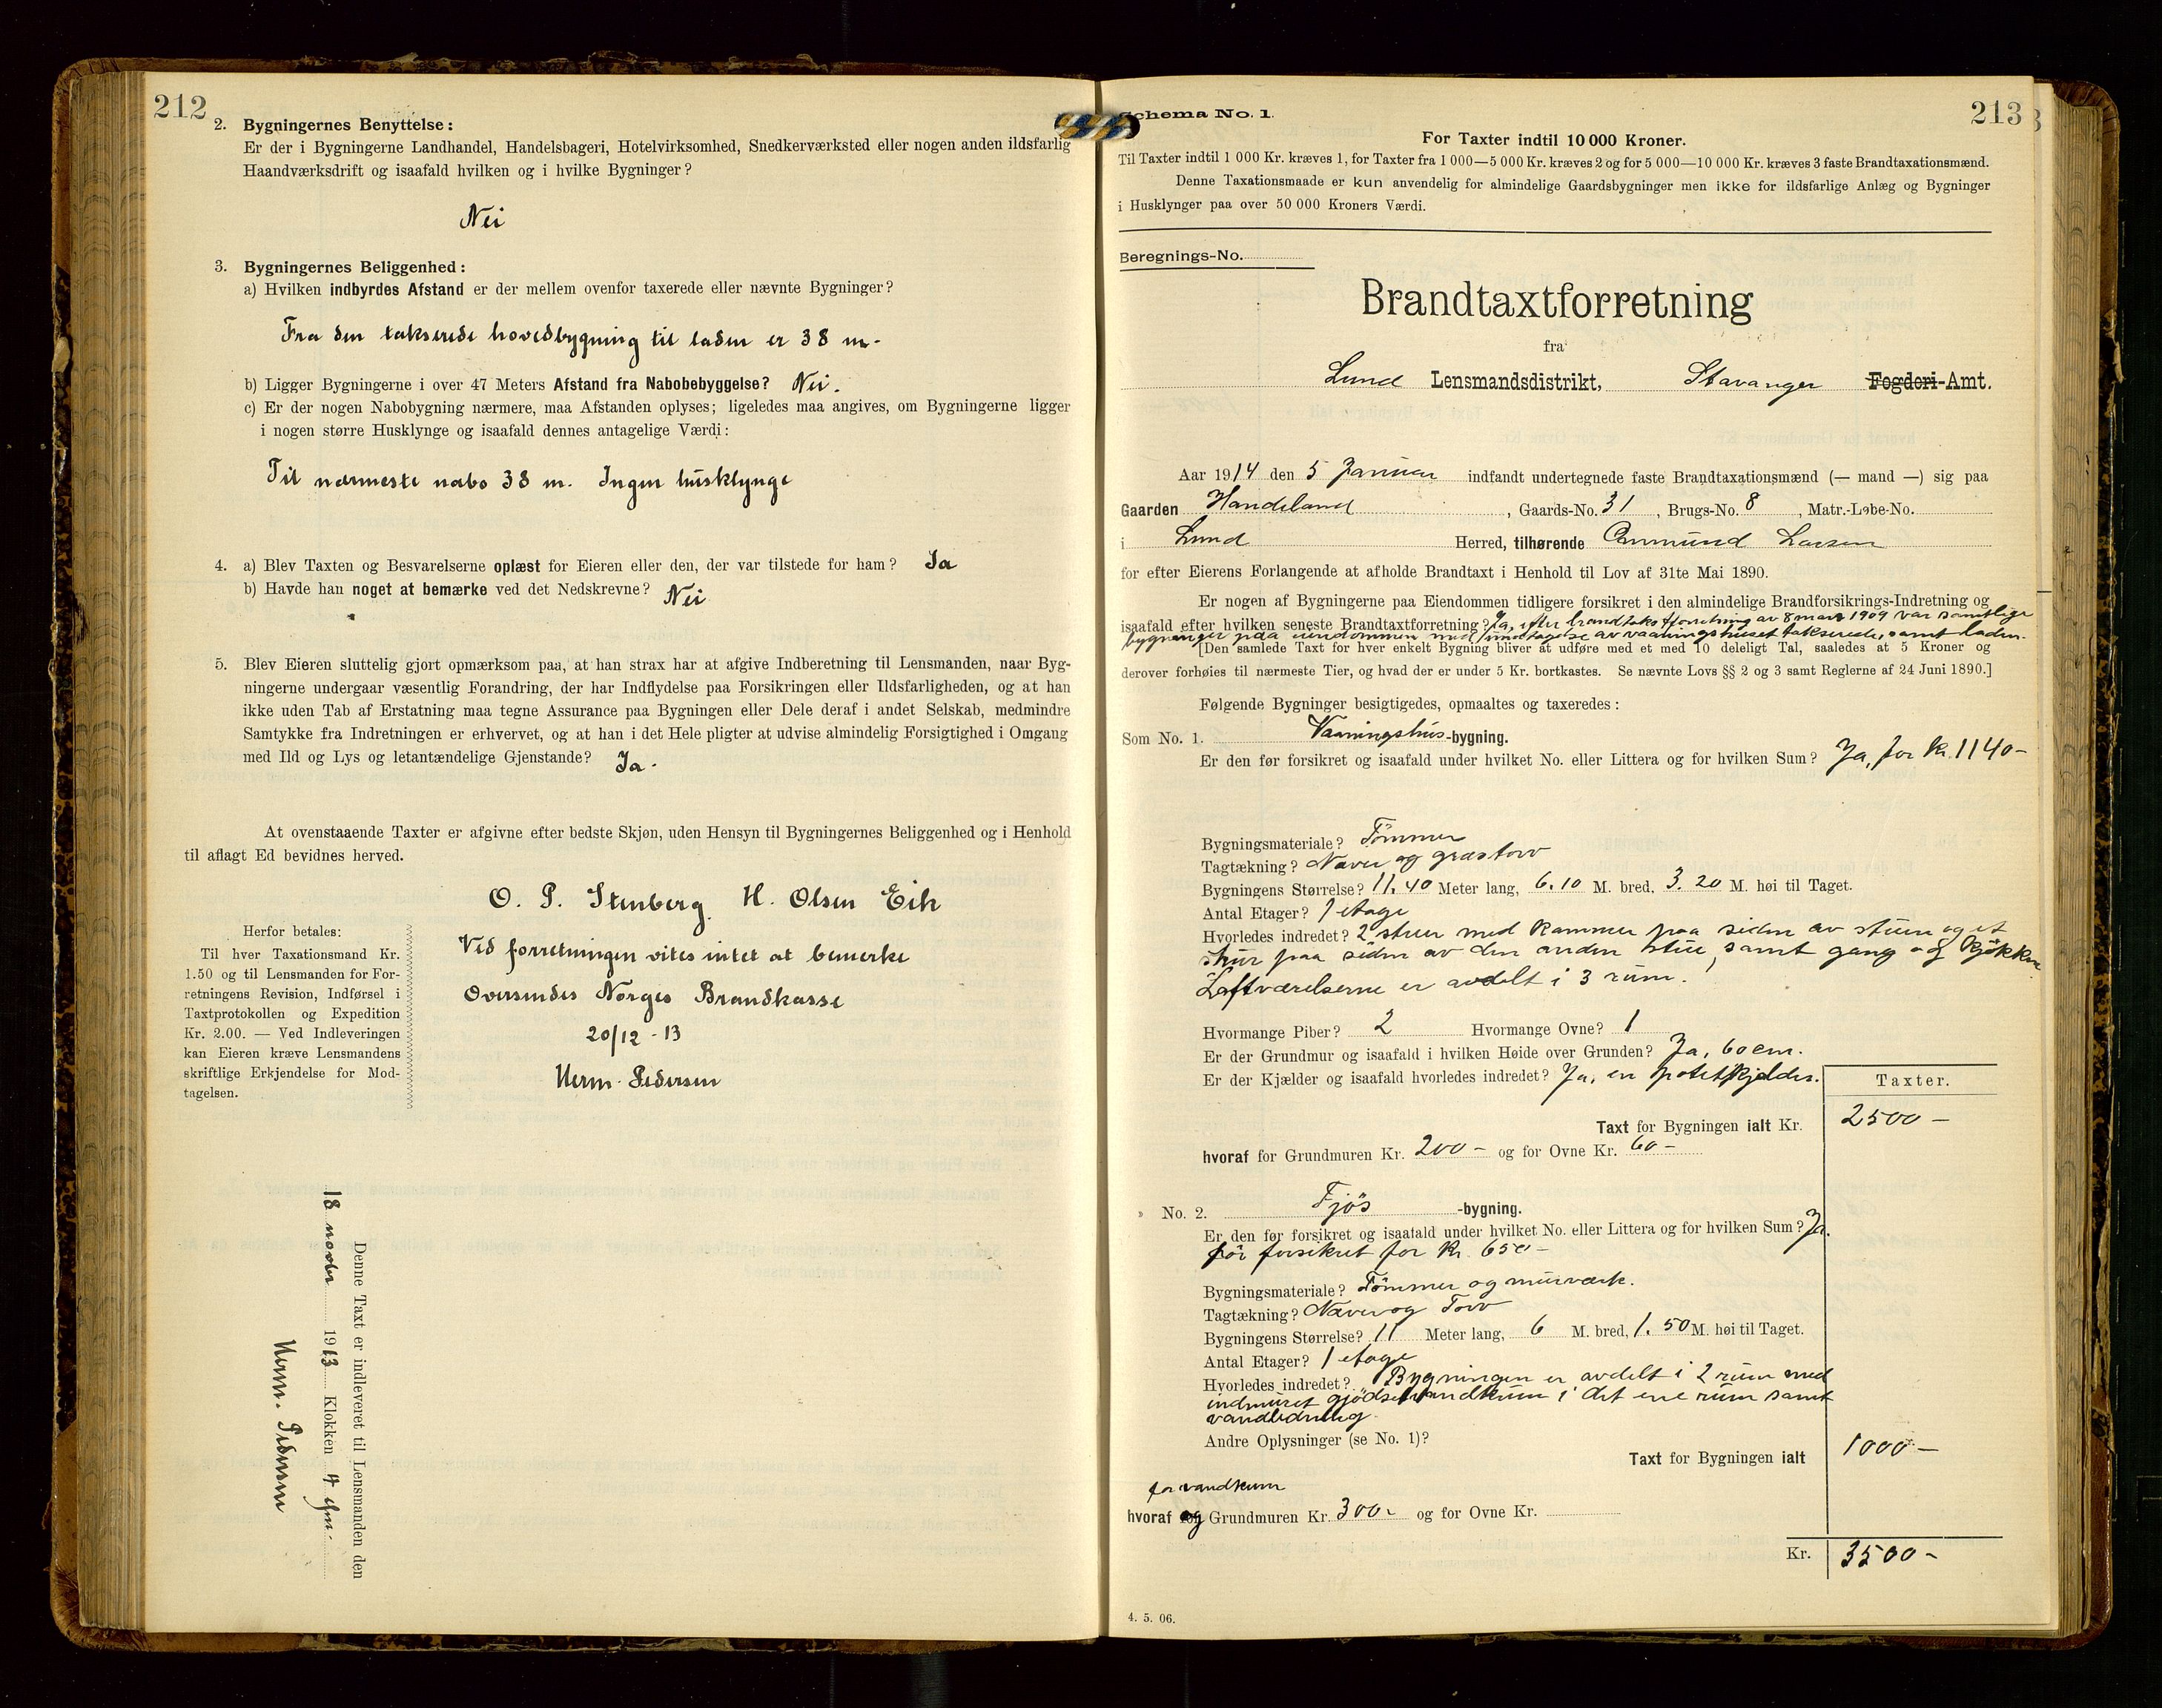 212
2. Bygningernes Benyttelse:
Er der i Bygningerne Landhandel, Handelsbageri, Hotelvirksomhed, Snedkerværksted eller nogen anden ildsfarlig
Haandværksdrift og isaafald hvilken og i hvilke Bygninger?
Nei
3. Bygningernes Beliggenhed:
a) Hvilken indbyrdes Afstand er der mellem ovenfor taxerede eller nævnte Bygninger?
Fra den takserede hovedbygning til laden er 38 m.
b) Ligger Bygningerne i over 47 Meters Afstand fra Nabobebyggelse? Nei.
c) Er der nogen Nabobygning nærmere, maa Afstanden oplyses; ligeledes maa angives, om Bygningerne ligger
i nogen større Husklynge og isaafald dennes antagelige Værdi:
Til nærmeste nabo 38 m. Ingen husklynge
4. a) Blev Taxten og Besvarelserne oplæst for Eieren eller den, der var tilstede for ham? Ja
b) Havde han noget at bemærke ved det Nedskrevne? Nei
5. Blev Eieren sluttelig gjort opmærksom paa, at han strax har at afgive Indberetning til Lensmanden, naar Byg-
ningerne undergaar væsentlig Forandring, der har Indflydelse paa Forsikringen eller Ildsfarligheden, og at han
ikke uden Tab af Erstatning maa tegne Assurance paa Bygningen eller Dele deraf i andet Selskab, medmindre
Samtykke fra Indretningen er erhvervet, og at han i det Hele pligter at udvise almindelig Forsigtighed i Omgang
med Ild og Lys og letantændelige Gjenstande? Ja.
At ovenstaaende Taxter er afgivne efter bedste Skjøn, uden Hensyn til Bygningernes Beliggenhed og i Henhold
til aflagt Ed bevidnes herved.
O. P. Stenberg H. Olsen Eik
Ved forretningen vites intet at bemerke
Oversendes Norges Brandkasse
20/12 - 13
Herm. Pedersen
Herfor betales:
Til hver Taxationsmand Kr.
1.50 og til Lensmanden for For-
retningens Revision, Indførsel i
Taxtprotokollen og Expedition
Kr. 2.00. — Ved Indleveringen
kan Eieren kræve Lensmandens
skriftlige Erkjendelse for Mod-
tagelsen.
Denne Taxt er indleveret til Lensmanden den
18 novbr 1913 Klokken 4 em.
Herm. Pedersen
213
Schema No. 1.
For Taxter indtil 10 000 Kroner.
Til Taxter indtil 1 000 Kr. kræves 1, for Taxter fra 1 000—5 000 Kr. kræves 2 og for 5 000—10 000 Kr. kræves 3 faste Brandtaxationsmænd.
Denne Taxationsmaade er kun anvendelig for almindelige Gaardsbygninger men ikke for ildsfarlige Anlæg og Bygninger
i Husklynger paa over 50 000 Kroners Værdi.
Beregnings-No.
Brandtaxtforretning
fra
Lund Lensmandsdistrikt, Stavanger Fogderi-Amt.
Aar 1914 den 5 Januar indfandt undertegnede faste Brandtaxationsmænd (— mand —) sig paa
Gaarden Handeland, Gaards-No. 31, Brugs-No. 8, Matr.-Løbe-No.
i Lund Herred, tilhørende Ommund Larsen
for efter Eierens Forlangende at afholde Brandtaxt i Henhold til Lov af 31te Mai 1890.
Er nogen af Bygningerne paa Eiendommen tidligere forsikret i den almindelige Brandforsikrings-Indretning og
isaafald efter hvilken seneste Brandtaxtforretning? Ja, efter brandtakstforretning av 8 mars 1909 var samtlige
bygninger paa eiendommen med undtagelse av vaaningshuset takserede, samt laden.
[Den samlede Taxt for hver enkelt Bygning bliver at udføre med et med 10 deleligt Tal, saaledes at 5 Kroner og
derover forhøies til nærmeste Tier, og hvad der er under 5 Kr. bortkastes. Se nævnte Lovs §§ 2 og 3 samt Reglerne af 24 Juni 1890.]
Følgende Bygninger besigtigedes, opmaaltes og taxeredes:
Som No. 1. Vaaningshus-bygning.
Er den før forsikret og isaafald under hvilket No. eller Littera og for hvilken Sum? Ja, for kr. 1140-
Bygningsmateriale? Tømmer
Tagtækning? Næver og græstorv
Bygningens Størrelse? 11.40 Meter lang, 6.10 M. bred, 3.20 M. høi til Taget.
Antal Etager? 1 etage
Hvorledes indredet? 2 stuer med kammer paa siden av stuen og et
skur paa siden av den anden stue, samt gang og kjøkken
Loftværelserne er avdelt i 3 rum.
Hvormange Piber? 2 Hvormange Ovne? 1
Er der Grundmur og isaafald i hvilken Høide over Grunden? Ja, 60 cm.
Er der Kjælder og isaafald hvorledes indredet? Ja, en potetkjelder.
Taxter.
Taxt for Bygningen ialt Kr. 2500-
hvoraf for Grundmuren Kr. 200- og for Ovne Kr. 60-
» No. 2. Fjøs -bygning.
Er den før forsikret og isaafald under hvilket No. eller Littera og for hvilken Sum? Ja.
før forsikret for kr. 650-
Bygningsmateriale? Tømmer og murværk.
Tagtækning? Næver og Torv
Bygningens Størrelse? 11 Meter lang, 6 M. bred, 1.50 M. høi til Taget.
Antal Etager? 1 etage
Hvorledes indredet? Bygningen er avdelt i 2 rum med
indmuret gjødselvandkum i det ene rum samt
vandledning.
Andre Oplysninger (se No. 1)?
Taxt for Bygningen ialt 1000-
for vandkum
hvoraf og Grundmuren Kr. 300- og for Ovne Kr.
Kr. 3500-
4. 5. 06.